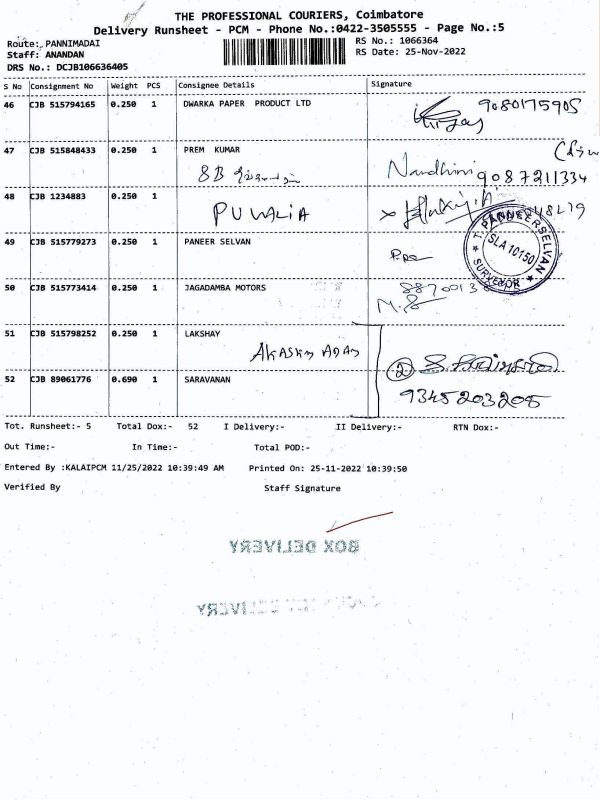 THE PROFESSIONAL COURIERS, Coimbatore
Delivery Runsheet - PCM - Phone No.:0422-3505555 - Page No.:5
Route: PANNIMADAI
RS No.: 1066364
Staff: ANANDAN
RS Date: 25-Nov-2022
DRS No.: DCJB106636405
S No Consignment No Weight PCS Consignee Details Signature
46 CJB 515794165 0.250 1 DWARKA PAPER PRODUCT LTD 9080175905
47 CJB 515848433 0.250 1 PREM KUMAR
8B Nandhini 9087211334
48 CJB 1234883 0.250 1
PUWALIA
49 CJB 515779273 0.250 1 PANEER SELVAN
T. PANNEERSELVAN
SLA 10150
SURVEYOR
50 CJB 515773414 0.250 1 JAGADAMBA MOTORS
51 CJB 515798252 0.250 1 LAKSHAY
2
52 CJB 89061776 0.690 1 SARAVANAN 9345203205
Tot. Runsheet:- 5 Total Dox:- 52 I Delivery:- II Delivery:- RTN Dox:-
Out Time:- In Time:- Total POD:-
Entered By :KALAIPCM 11/25/2022 10:39:49 AM Printed On: 25-11-2022 10:39:50
Verified By Staff Signature
BOX DELIVERY
DELIVERY